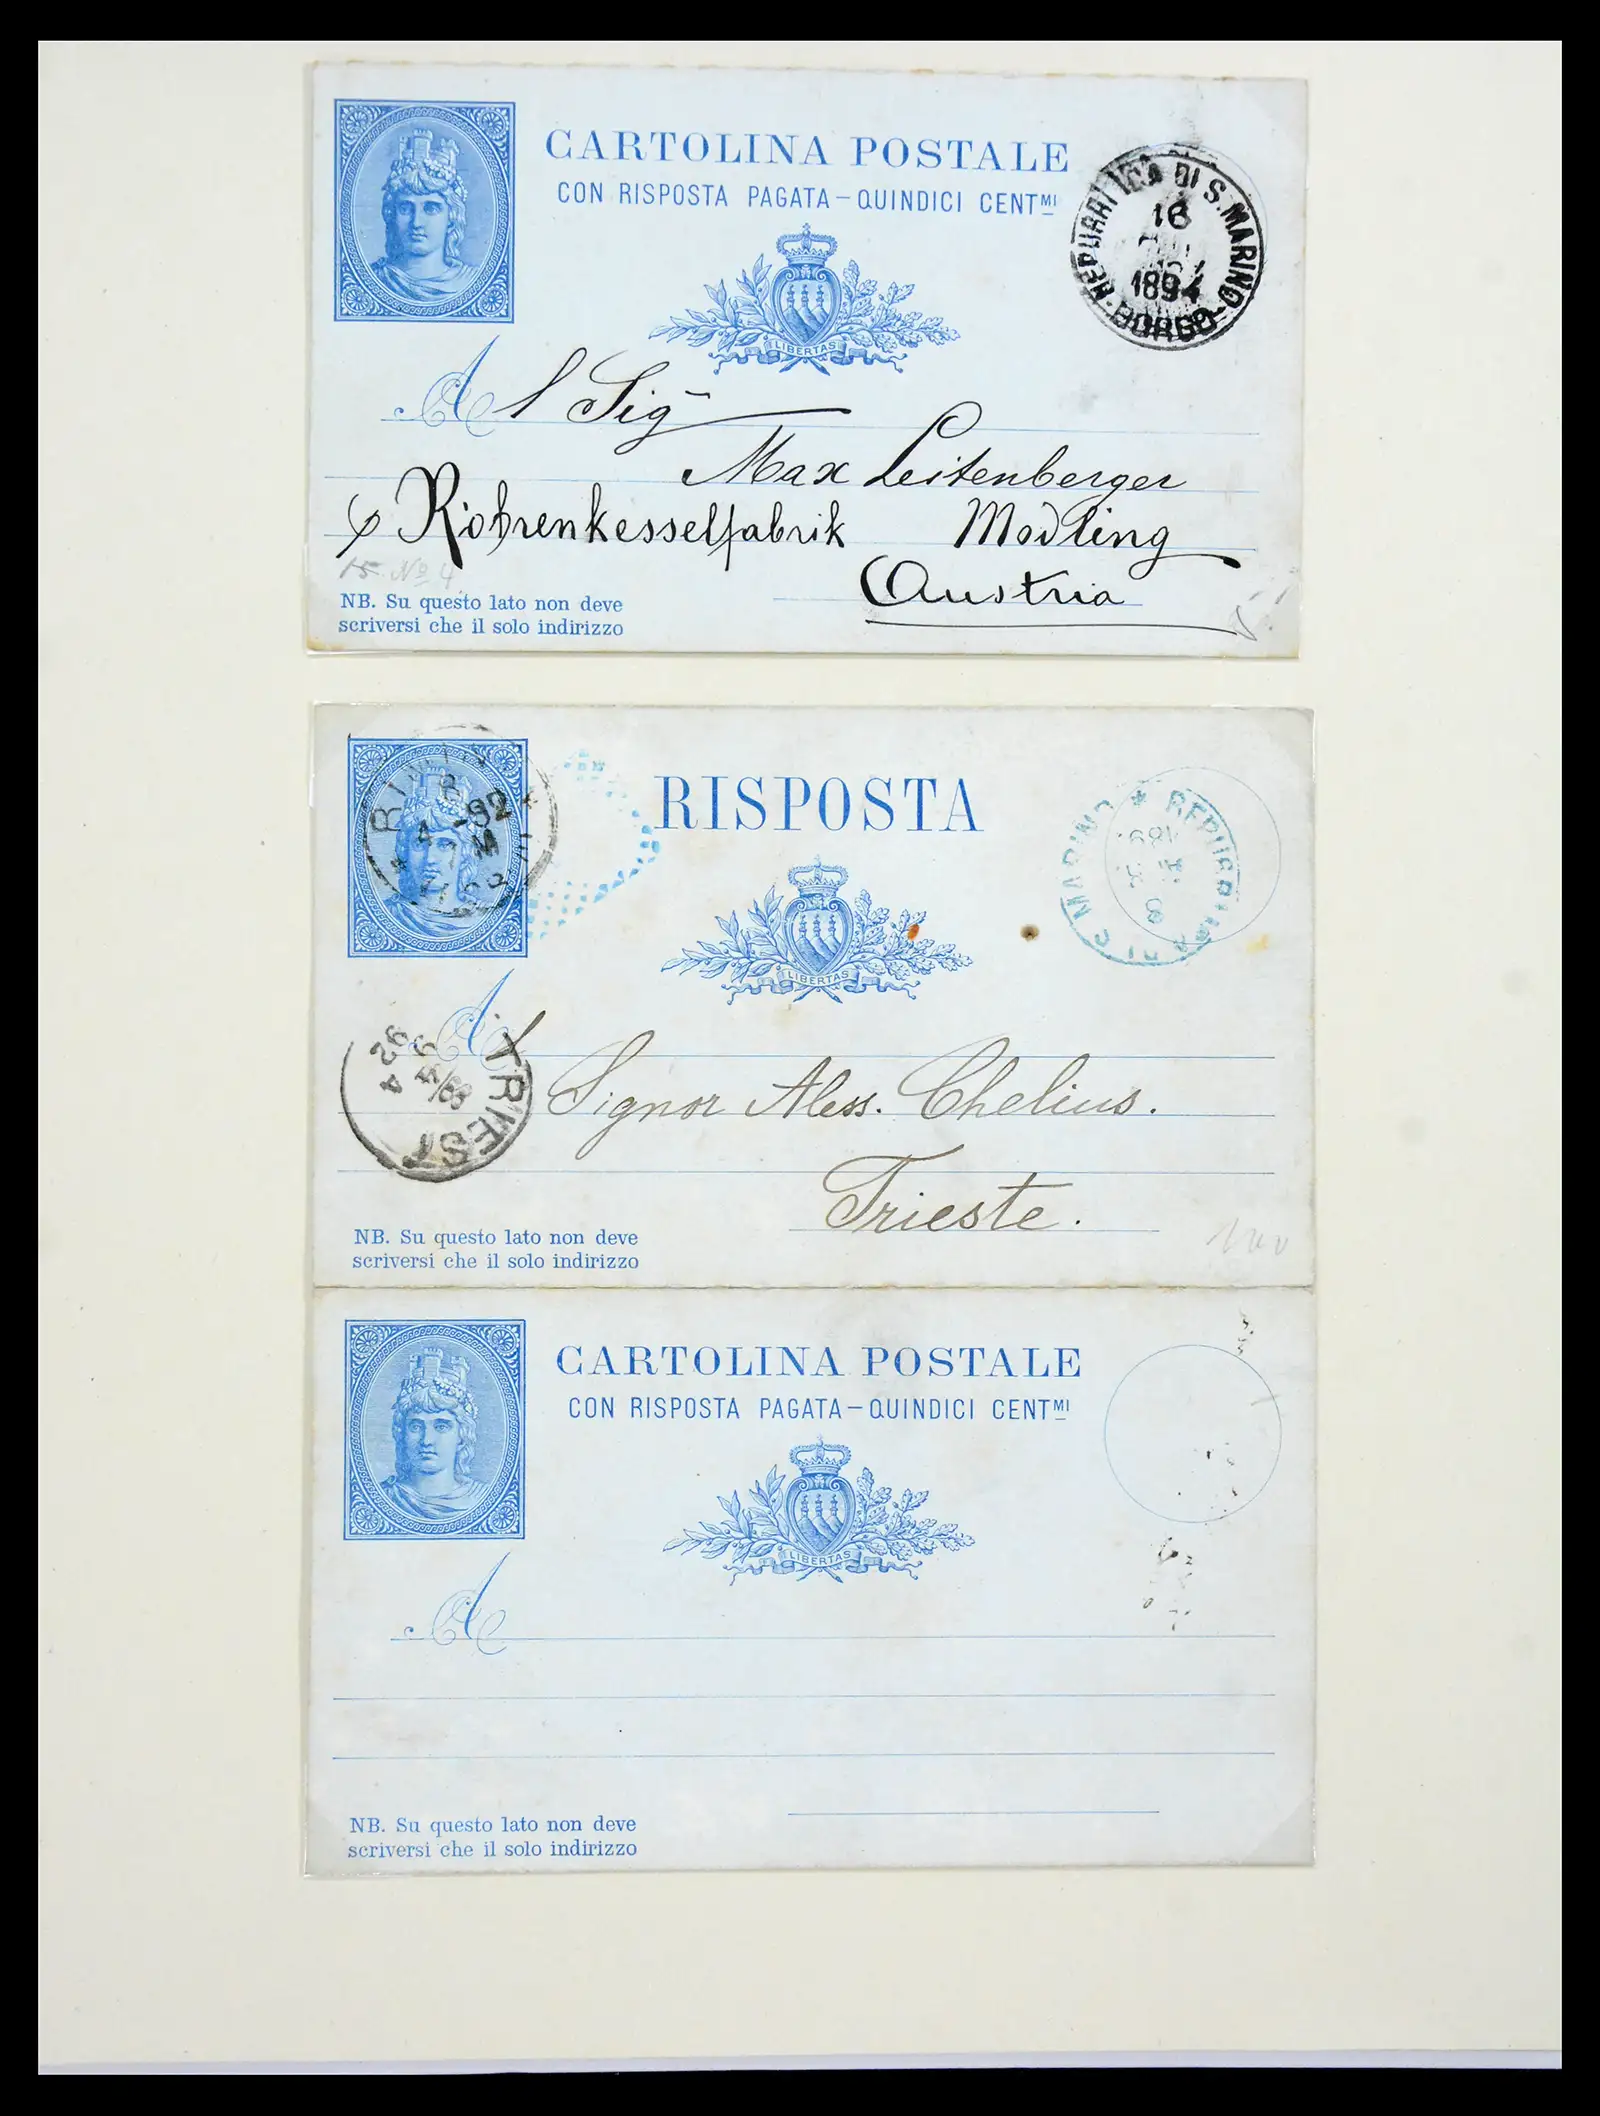 CARTOLINA POSTALE
CON RISPOSTA PAGATA – QUINDICI CENTMI
REPUBBLICA DI S. MARINO
16
1894
BORGO
LIBERTAS
Al Sig
Max Leitenberger
Röhrenkesselfabrik Modling
Austria
15 No 4
NB. Su questo lato non deve
scriversi che il solo indirizzo
RISPOSTA
4 - 92
REPUBBLICA DI S. MARINO
LIBERTAS
TRIEST
92
Al
Signor Aless. Chelius.
Trieste.
NB. Su questo lato non deve
scriversi che il solo indirizzo
CARTOLINA POSTALE
CON RISPOSTA PAGATA – QUINDICI CENTMI
LIBERTAS
A
NB. Su questo lato non deve
scriversi che il solo indirizzo